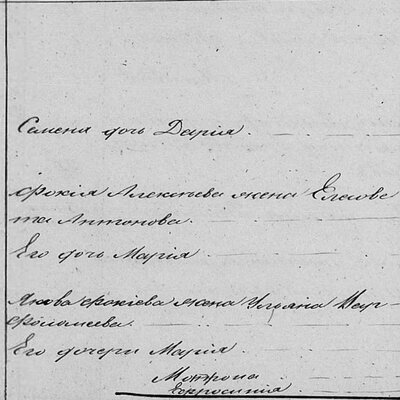 Семена дочь Дарія.
Фокія Алексѣева жена Елисаве
та Антонова.
Его дочь Марія
Якова Фокіева жена Ульяна Вар-
фоломеева.
Его дочери Марія.
Мотрона
Евфросинія